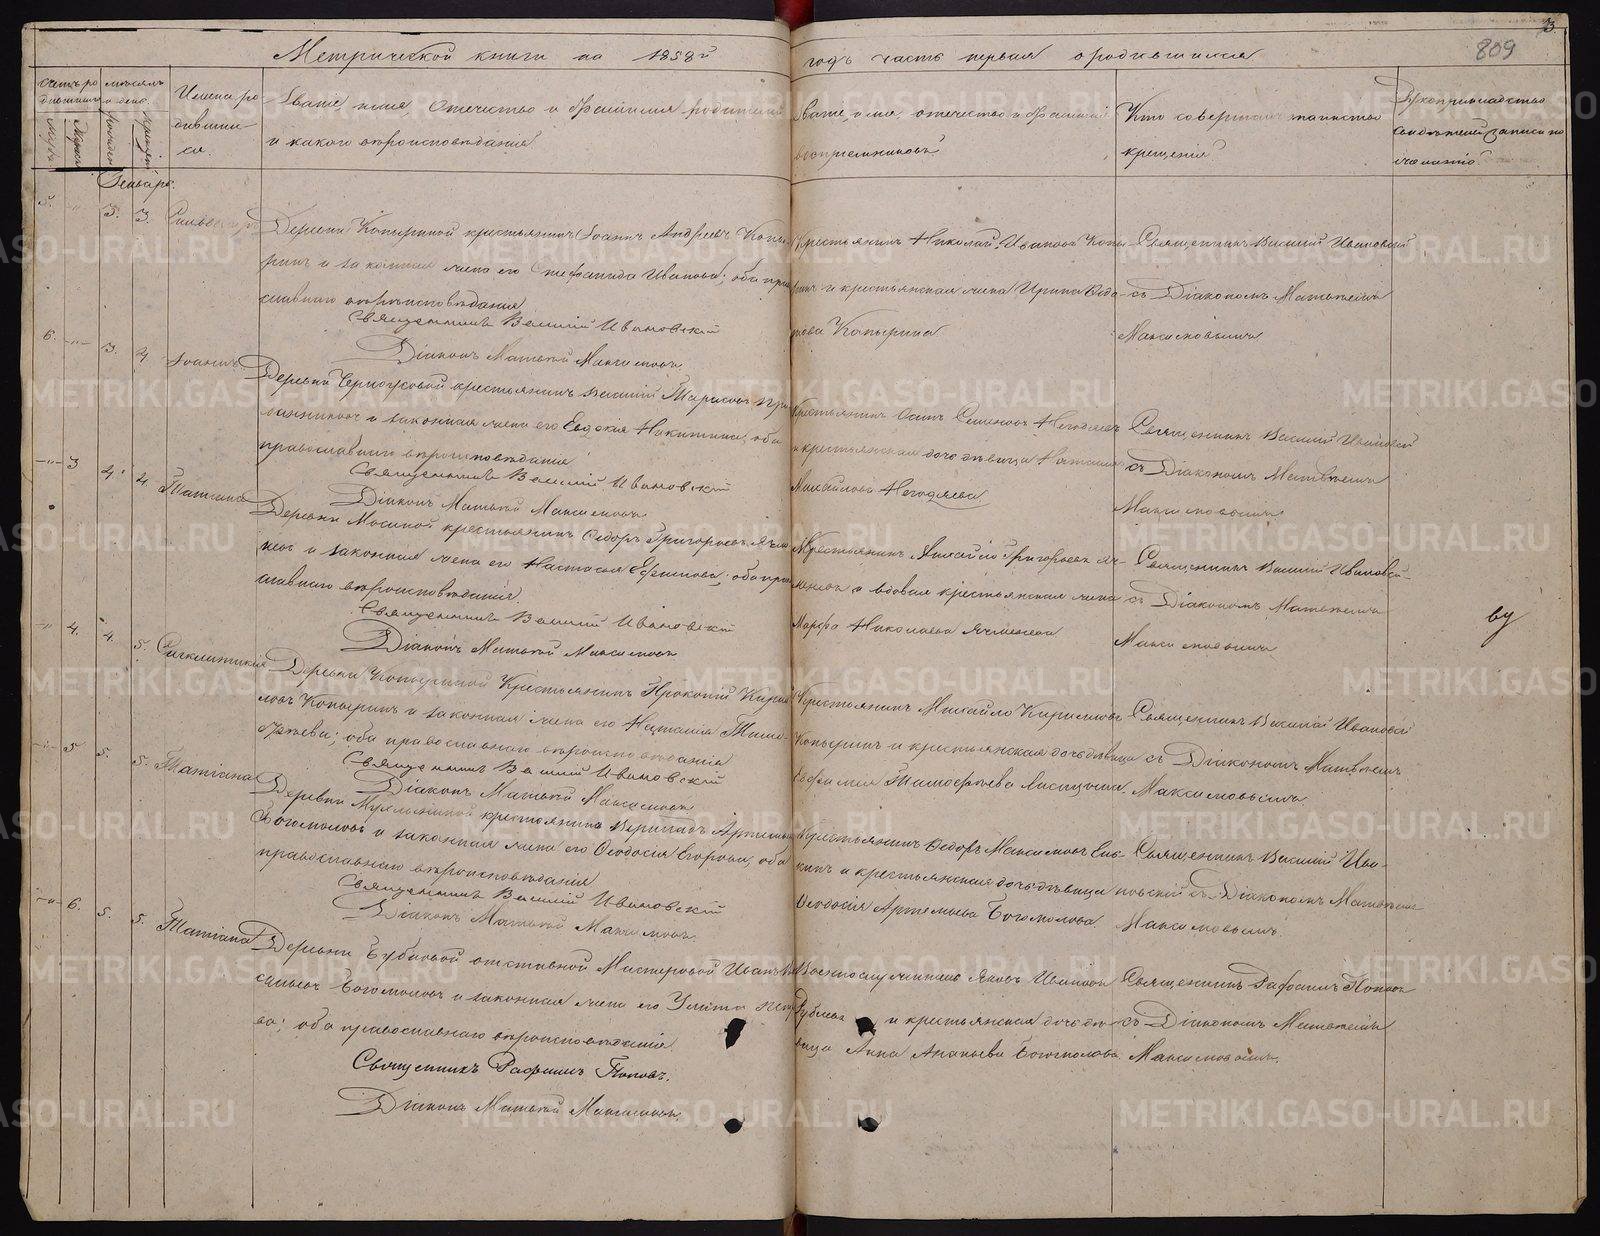 Метрической книги на 1858й
годъ часть первая о родившихся
3.
809
Счетъ ро
дившихся
Мужеска
Женска
Мѣсяцъ
и день
рожденія
крещенія
Имена ро
дивши
ся.
Званіе, имя, отечество и фамилія родителей
и какого вѣроисповѣданія
Званіе, имя, отечество и фамилія
воспріемниковъ
Кто совершалъ таинство
крещенія
Рукоприкладство
свидѣтелей записи по
желанію
Генварь.
5. " 3. 3.
Деревни Копыриной крестьянинъ Іоаннъ Андреевъ Копы-
ринъ и законная жена его Стефанида Иванова; оба пра
славнаго вѣроисповѣданія
Священникъ Василій Ивановскій
Діаконъ Матвѣй Максимовъ
Крестьянинъ Николай Ивановъ Копы
ринъ и крестьянская жена Ирина Ѳедо-
това Копырина
Священникъ Василій Ивановскій
съ Діакономъ Матвѣемъ
Максимовымъ
6. " 3. 4 Іоаннъ
Деревни крестьянинъ Василій Тарасовъ
и законная жена его Евдокія Никитина, оба
православнаго вѣроисповѣданія
Священникъ Василій Ивановскій
Діаконъ Матвѣй Максимовъ
Крестьянинъ Осипъ Семеновъ Негодяевъ
и крестьянская дочь дѣвица Наталія
Михайлова Негодяева
Священникъ Василій Ивановскій
съ Діакономъ Матвѣемъ
Максимовымъ
" 3 4. 4. Татіана
Деревни Мосиной крестьянинъ Ѳедоръ Григорьевъ Ячме
невъ и законная жена его Настасья Ефимова; оба пра
славнаго вѣроисповѣданія.
Священникъ Василій Ивановскій
Діаконъ Матвѣй Максимовъ
Крестьянинъ Михайло Григорьевъ Яч-
меневъ и вдовая крестьянская жена
Марфа Николаева Ячменева
Священникъ Василій Ивановскій
съ Діакономъ Матвѣемъ
Максимовымъ
" 4. 4. 5. Синклитикія
Деревни Копыриной Крестьянинъ Прокопій Кирил
ловъ Копыринъ и законная жена его Наталія Тимо-
фѣева; оба православнаго вѣроисповѣданія
Священникъ Василій Ивановскій
Діаконъ Матвѣй Максимовъ
Крестьянинъ Михайло Кириловъ
Копыринъ и крестьянская дочь дѣвица
Евфимія Тимофѣева Лисицына.
Священникъ Василій Ивановскій
съ Діакономъ Матвѣемъ
Максимовымъ
" 5 5. 5. Татіана
Деревни крестьянинъ Артемьевъ
Богомоловъ и законная жена его Ѳеодосія Егорова, оба
православнаго вѣроисповѣданія
Священникъ Василій Ивановскій
Діаконъ Матвѣй Максимовъ
Крестьянинъ Ѳедоръ Максимовъ
и крестьянская дочь дѣвица
Ѳеодосія Артемьева Богомолова.
Священникъ Василій Ива-
новскій съ Діакономъ Матвѣемъ
Максимовымъ.
" 6. 5. 5. Татіана
Деревни Бубновой отставной Мастеровой Иванъ Ва
сильевъ Богомоловъ и законная жена его Улита Петро
ва; оба православнаго вѣроисповѣданія
Священникъ Рафаилъ Поповъ.
Діаконъ Матвѣй Максимовъ
Военнослужитель Яковъ Ивановъ
и крестьянская дочь дѣ-
вица Анна Ананьева Богомолова
Священникъ Рафаилъ Поповъ
съ Діакономъ Матвѣемъ
Максимовымъ.
METRIKI.GASO-URAL.RU